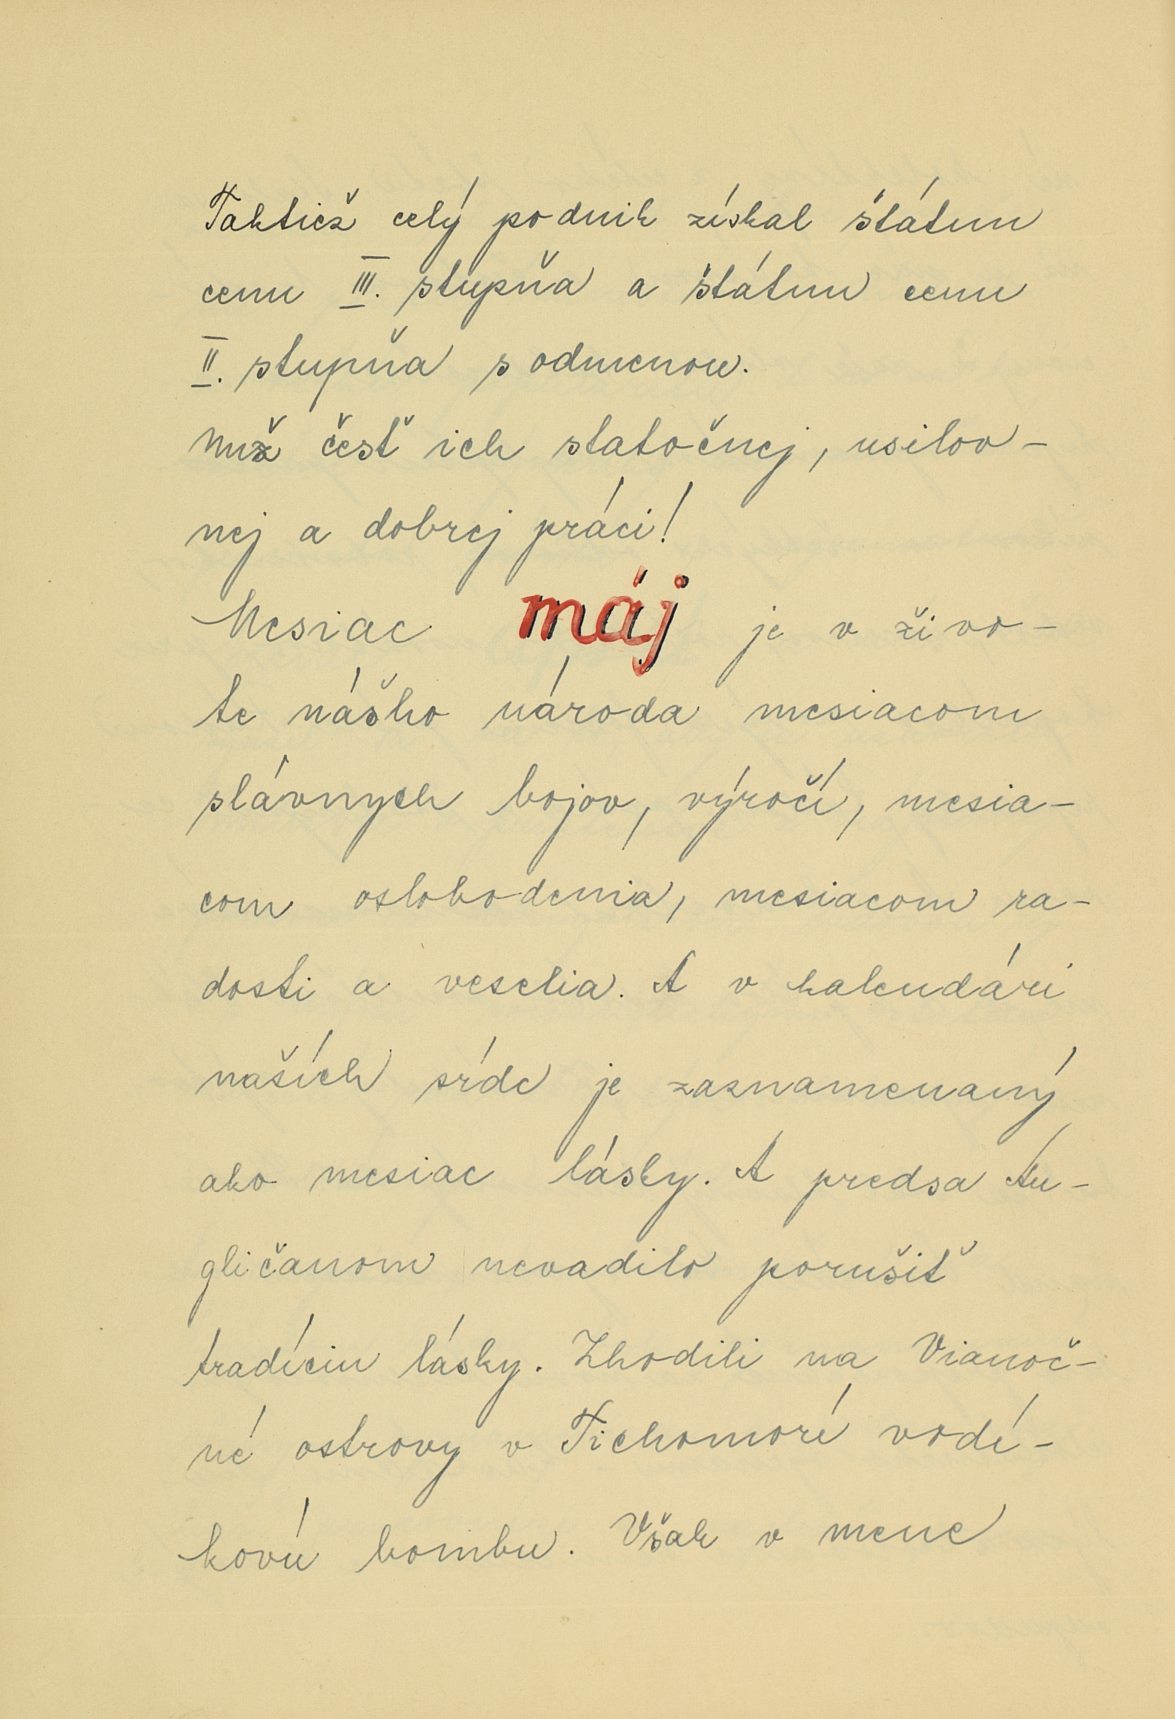 Taktiež celý podnik získal štátnu
cenu III. stupňa a štátnu cenu
II. stupňa s odmenou.
Nuž česť ich statočnej, usilov-
nej a dobrej práci!
Mesiac máj je v živo-
te nášho národa mesiacom
slávnych bojov, výročí, mesia-
com oslobodenia, mesiacom ra-
dosti a veselia. A v kalendári
naších sŕdc je zaznamenaný
ako mesiac lásky. A predsa An-
gličanom nevadilo porušiť
tradíciu lásky. Zhodili na Vianoč-
né ostrovy v Tichomorí vodí-
kovú bombu. Však v mene